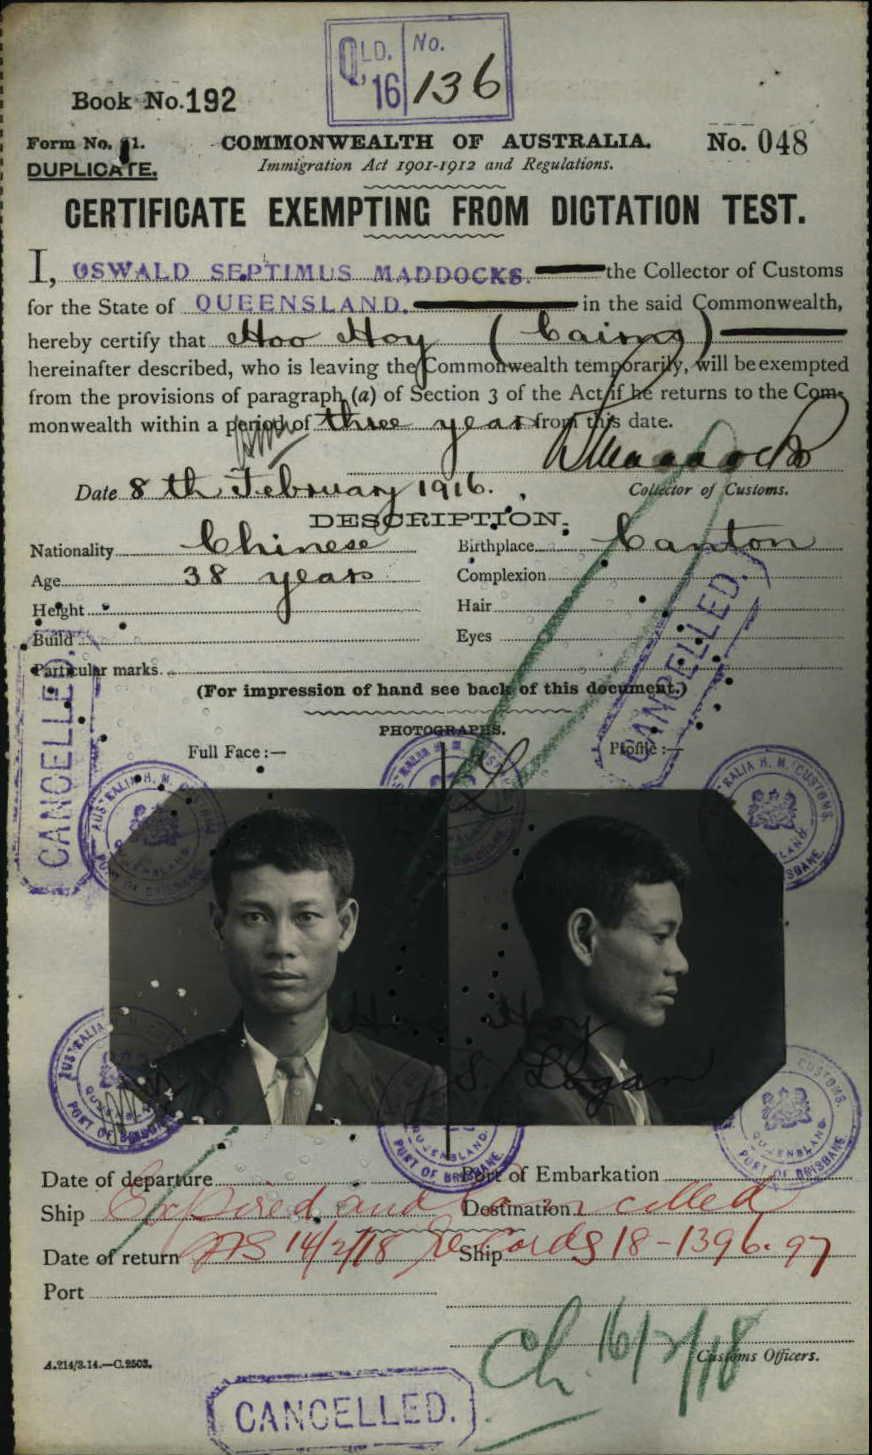 QLD. No.
'16 136
Book No. 192
Form No. 21. COMMONWEALTH OF AUSTRALIA. No. 048
DUPLICATE. Immigration Act 1901-1912 and Regulations.
CERTIFICATE EXEMPTING FROM DICTATION TEST.
I, OSWALD SEPTIMUS MADDOCKS. the Collector of Customs
for the State of QUEENSLAND. in the said Commonwealth,
hereby certify that Hoo Hoy (Cairns)
hereinafter described, who is leaving the Commonwealth temporarily, will be exempted
from the provisions of paragraph (a) of Section 3 of the Act if he returns to the Com-
monwealth within a period of three years from this date.
Date 8th February 1916. Collector of Customs.
DESCRIPTION.
Nationality Chinese Birthplace Canton
Age 38 years Complexion
Height Hair
Build Eyes
Particular marks.
(For impression of hand see back of this document.)
CANCELLED.
CANCELLED.
PHOTOGRAPHS.
Full Face :— Profile :—
AUSTRALIA H. M. CUSTOMS.
QUEENSLAND
PORT OF BRISBANE.
Hoo Hoy
S. Logan
AUSTRALIA
QUEENSLAND
PORT OF BRISBANE
QUEENSLAND.
PORT OF BRISBANE
CUSTOMS.
QUEENSLAND.
PORT OF BRISBANE
Date of departure Port of Embarkation
Ship Destination
Expired and cancelled
Date of return Ship
14/2/18 Records 18-1396.97
Port
Ch. 16/2/18
Customs Officers.
A.214/3.14.—C.2503.
CANCELLED.